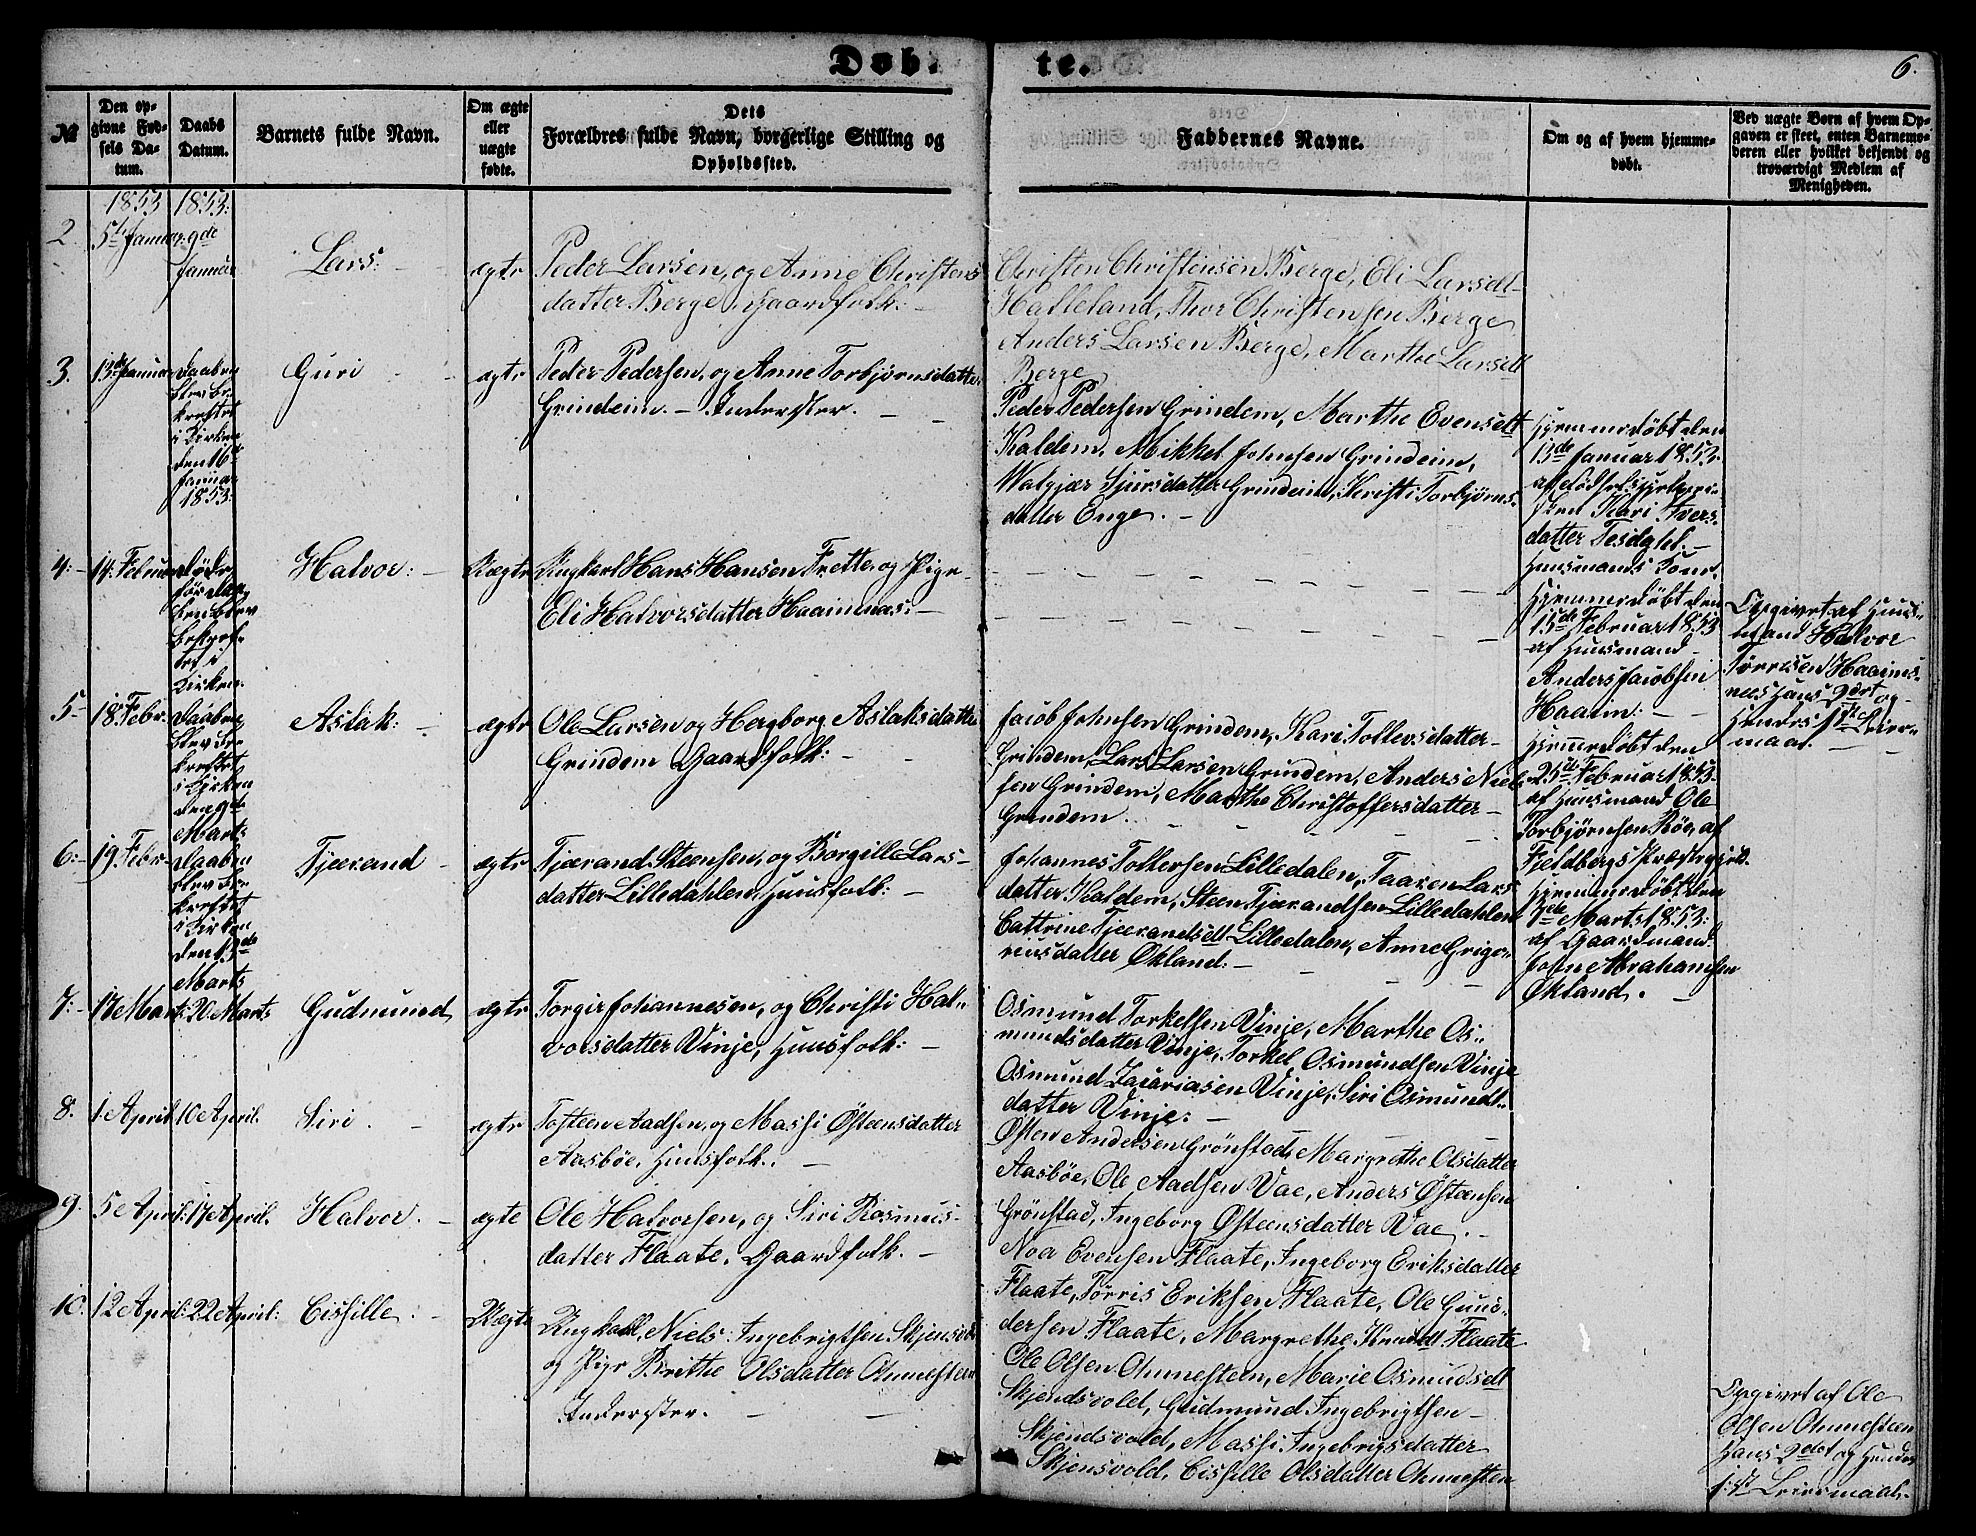 Døbte.
6.
№
Den opgivne Fødsels Datum.
Daabs Datum.
Barnets fulde Navn.
Om ægte eller uægte fødte.
Dets Forældres fulde Navn, borgerlige Stilling og Opholdssted.
Faddernes Navne.
Om og af hvem hjemmedøbt.
Ved uægte Børn af hvem Opgaven er skeet, enten Barnemoderen eller hvilket bekjendt og troværdigt Medlem af Menigheden.
1853 1853:
2.
5te Januar
9de
Januar
Lars:
ægte
Peder Larsen, og Anne Christens
datter Berge, Gaardfolk:
Christen Christensen Berge, Eli Larsdt
Halleland, Thor Christensen Berge
Anders Larsen Berge, Marthe Larsdt
Berge
3.
13de Januar
Daaben
blev be
kreftet
i Kirken
den 16de
Januar
1853.
Guri
ægte
Peder Pedersen, og Anne Torbjørnsdatter
Grindeim. Inderster.
Peder Pedersen Grindem, Marthe Evensdt
Kaldem, Mikkel Johnsen Grindeim,
Walgjær Sjursdatter Grindeim, Kristi Torbjørns
datter Enge.
Hjemmedøbt den
13de Januar 1853.
af
Kari Ivers
datter Tesdahl.
Huusmands Kone.
4:
14: Februar
døde
før Daa
ben blev
bekref
tet i
Kirken.
Halvor:
Uægte
Ungkarl Hans Hansen Frette, og Pige
Eli Halvorsdatter Haaimnæs:
Hjemmedøbt den
15de Februar 1853
af Huusmand
Anders Jacobsen
Haaim:
Opgivet af Huus
mand Halvor
Tørresen Haaims
næs Hans 2det og
Hendes 1ste Leier
maal.
5
18. Febr.
Daaben
blev be
kreftet
i Kirken
den 9de
Marts
Aslak:
ægte
Ole Larsen og Hergborg Aslaksdatter
Grindem Gaardfolk:
Jacob Johnsen Grindem, Kari Tollevsdatter
Grindem, Lars Larsen Grindem, Anders Niel
sen Grindem, Marthe Christoffersdatter
Grindem.
Hjemmedøbt den
25de Februar 1853
af Huusmand Ole
Torbjørnsen Røe, af
Fjeldbergs Præstegjeld.
6:
19. Febr.
Daaben
blev be
kreftet
i Kirken
den 13de
Marts
Tjærand
ægte
Tjærand Steensen, og Børgille Lars
datter Lilledahlen, Huusfolk:
Johannes Tollefsen Lilledalen, Taaren Lars
datter Kaldem, Steen Tjærandsen Lilledahlen
Cattrine Tjærandsdt Lilledalen, Anne Grigo
riusdatter Økland:
Hjemmedøbt den
7de Marts 1853:
af Gaardmand
John Abrahamsen
Økland.
7:
17 Mart:
20 Marts
Gudmund
ægte
Torgir Johannesen, og Christi Hal
vorsdatter Vinje, Huusfolk:
Osmund Torkelsen Vinje, Marthe Os
mundsdatter Vinje, Torkel Osmundsen Vinje
Osmund Zacariasen Vinje, Siri Osmunds
datter Vinje.
8.
1 April
10 April.
Siri.
ægte
Tosteen Aadsen, og Massi Østeensdatter
Aasbøe, Huusfolk.
Østen Andersen Grønstad, Margrethe Olsdatter
Aasbøe, Ole Aadsen Vae, Anders Østensen
Grønstad, Ingeborg Østeensdatter Vae.
9.
5 April
17 April.
Halvor.
ægte
Ole Halvorsen, og Siri Rasmus
datter Flaate. Gaardfolk.
Noa Evensen Flaate, Ingeborg Eriksdatter
Flaate, Tørris Eriksen Flaate, Ole Guno
dersen Flaate, Margrethe Knudsdt Flaate
10.
12 April
22 April:
Cissille:
Uægte
Ungkarl Niels Ingebrigtsen Skjensvold
og Pige Brithe Olsdatter Ommesteen
Inderster.
Ole Olsen Ommesteen, Marie Osmundsdt
Skjendsvold, Gudmund Ingebrigtsen
Skjendsvold, Massi Ingebrigsdatter
Skjensvold, Cissille Olsdatter Ommesten
Opgivet af Ole
Olsen Ommesteen
Hans 2det og Hendes
1ste Leiermaal.